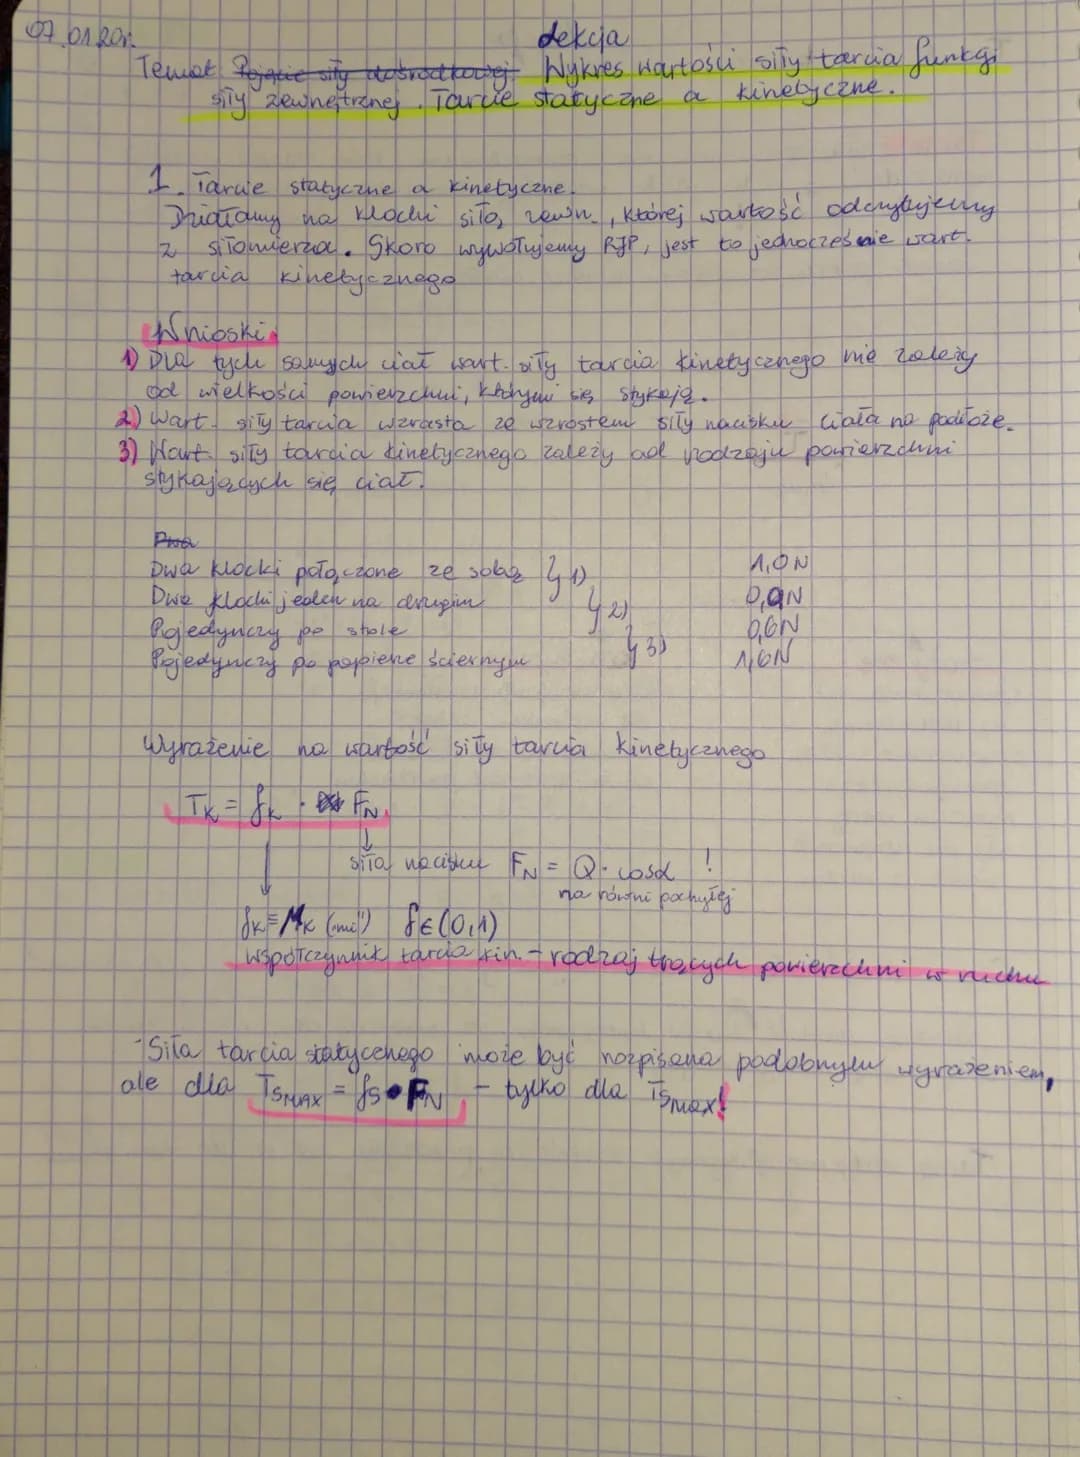 07.01.20r.
Lekcja
Temat Pojęcie siły dośrodkowej Wykres wartości siły tarcia funkcji
siły zewnętrznej. Tarcie statyczne a kinetyczne.
1. Tarcie statyczne a kinetyczne.
Działamy na klocki siłą zewn., której wartość odczytujemy
z siłomierza. Skoro wywołujemy RJP, jest to jednocześnie wart.
tarcia kinetycznego
Wnioski
1) Dla tych samych ciał wart. siły tarcia kinetycznego nie zależy
od wielkości powierzchni, którymi się stykają.
2) Wart. siły tarcia wzrasta ze wzrostem siły nacisku ciała na podłoże.
3) Wart. siły tarcia kinetycznego zależy od rodzaju powierzchni
stykających się ciał.
Dwa
Dwa klocki połączone ze sobą } 1) 1,0N
Dwa klocki jeden na drugim } 2) 0,9N
Pojedynczy po stole } 3) 0,6N
Pojedynczy po papierze ściernym 1,6N
Wyrażenie na wartość siły tarcia kinetycznego
TK = fK · FN
↓
siła nacisku FN = Q · cosα !
na równi pochyłej
fK = μK („mi") f∈(0,1)
współczynnik tarcia kin. - rodzaj trących powierzchni w ruchu
- Siła tarcia statycenego może być rozpisana podobnym wyrażeniem,
ale dla TSMAX = fS · FN - tylko dla TSmax!